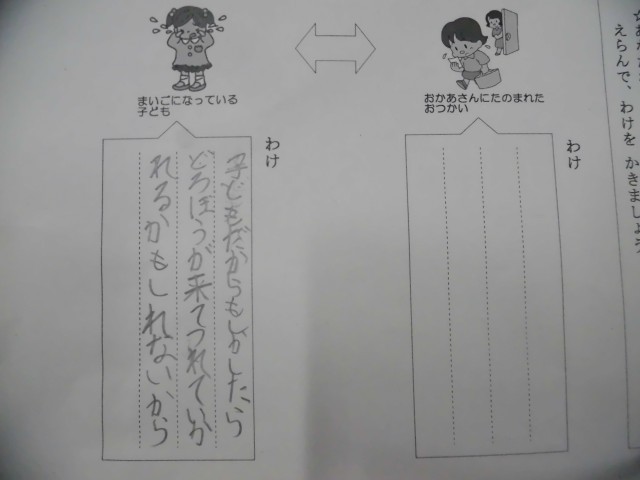 えらんで、わけを かきましょう
まいごになっている
子ども
おかあさんにたのまれた
おつかい
わけ
わけ
子どもだからもしかしたら
どろぼうが来てつれていか
れるかもしれないから